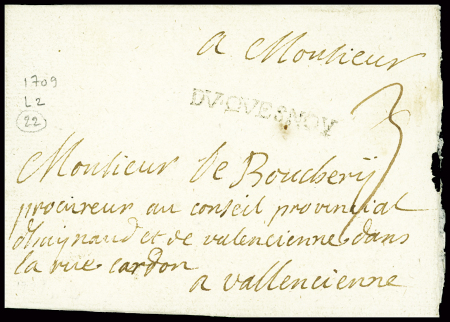 a Monsieur
1709
L2
22
DVQVESNOY
3
Monsieur de Bouchery
procureur au conseil provincial
d'haynaud et de valencienne dans
la rue cardon
a vallencienne